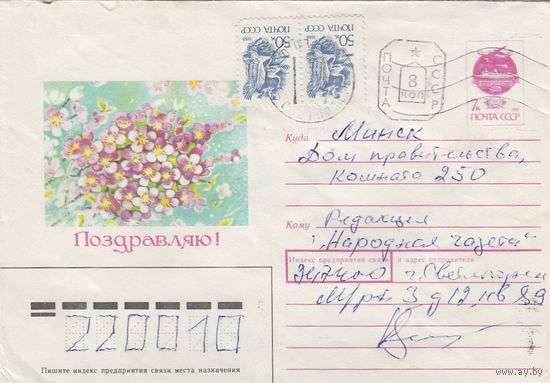 50к ПОЧТА СССР 1988
50к ПОЧТА СССР 1988
ПОЧТА СССР
8
коп
7к
ПОЧТА СССР
Поздравляю!
Куда Минск
Дом правительства,
комната 250
Кому Редакция
"Народная газета"
Индекс предприятия связи и адрес отправителя
247400 г. Светлогорск
М/рн 3 д 12, кв 89
220010
Пишите индекс предприятия связи места назначения
www.ay.by